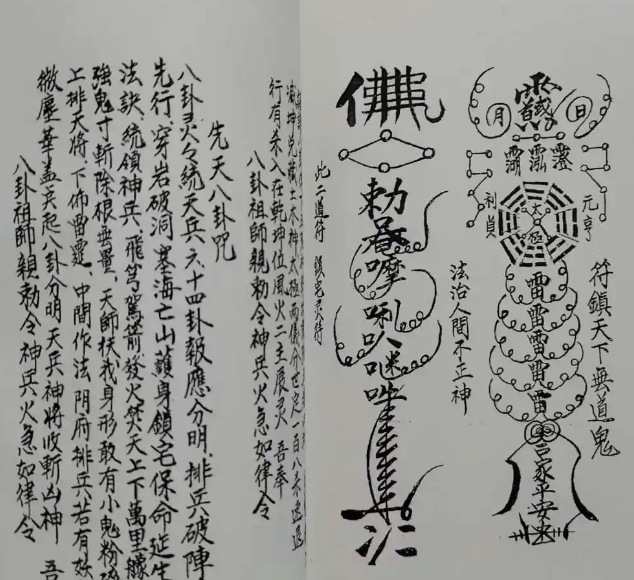 符鎮天下無道鬼
日
月
元亨
利貞
太極
雷雷雷雷雷
家平安
法治人間不正神
佛
勅
此二道符 鎮宅灵符
行有杀入在乾坤位風火二主展灵 吾奉
八卦祖師親勅令神兵火急如律令
先天八卦咒
八卦灵令統天兵六十四卦報應分明,排兵破陣
先行,穿岩破洞塞海亡山護身鎖宅保命延生
法訣,統領神兵飛弩駕箭發火焚天上下萬里
強鬼寸斬除根無量,天師扶我身形敢有小鬼粉碎
上排天将下佈雷霆,中間作法阴府排兵若有妖
微塵華盖英起八卦分明天兵神将收斬凶神 吾
八卦祖師親勅令神兵火急如律令